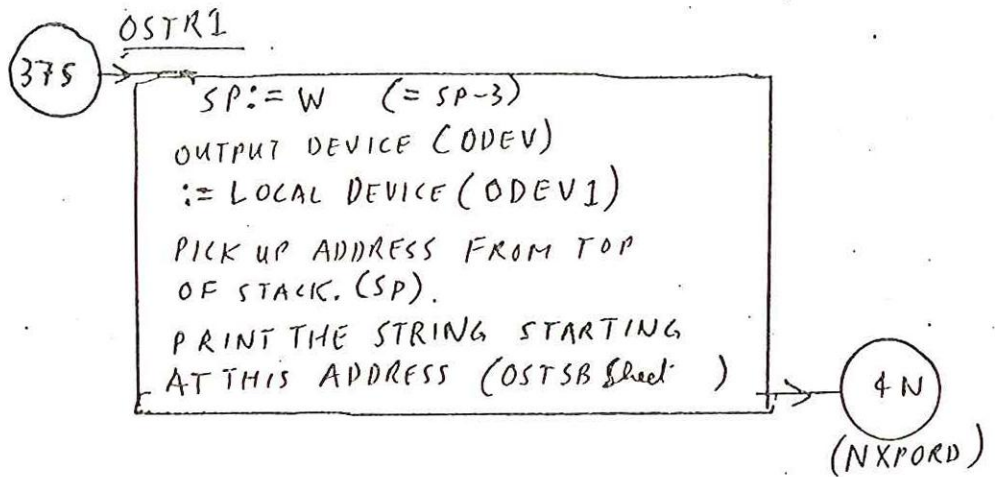 OSTR1
37S
SP:= W (= SP-3)
OUTPUT DEVICE (ODEV)
:= LOCAL DEVICE (ODEV1)
PICK UP ADDRESS FROM TOP
OF STACK. (SP).
PRINT THE STRING STARTING
AT THIS ADDRESS (OSTSB Sheet )
4N
(NXPORD)